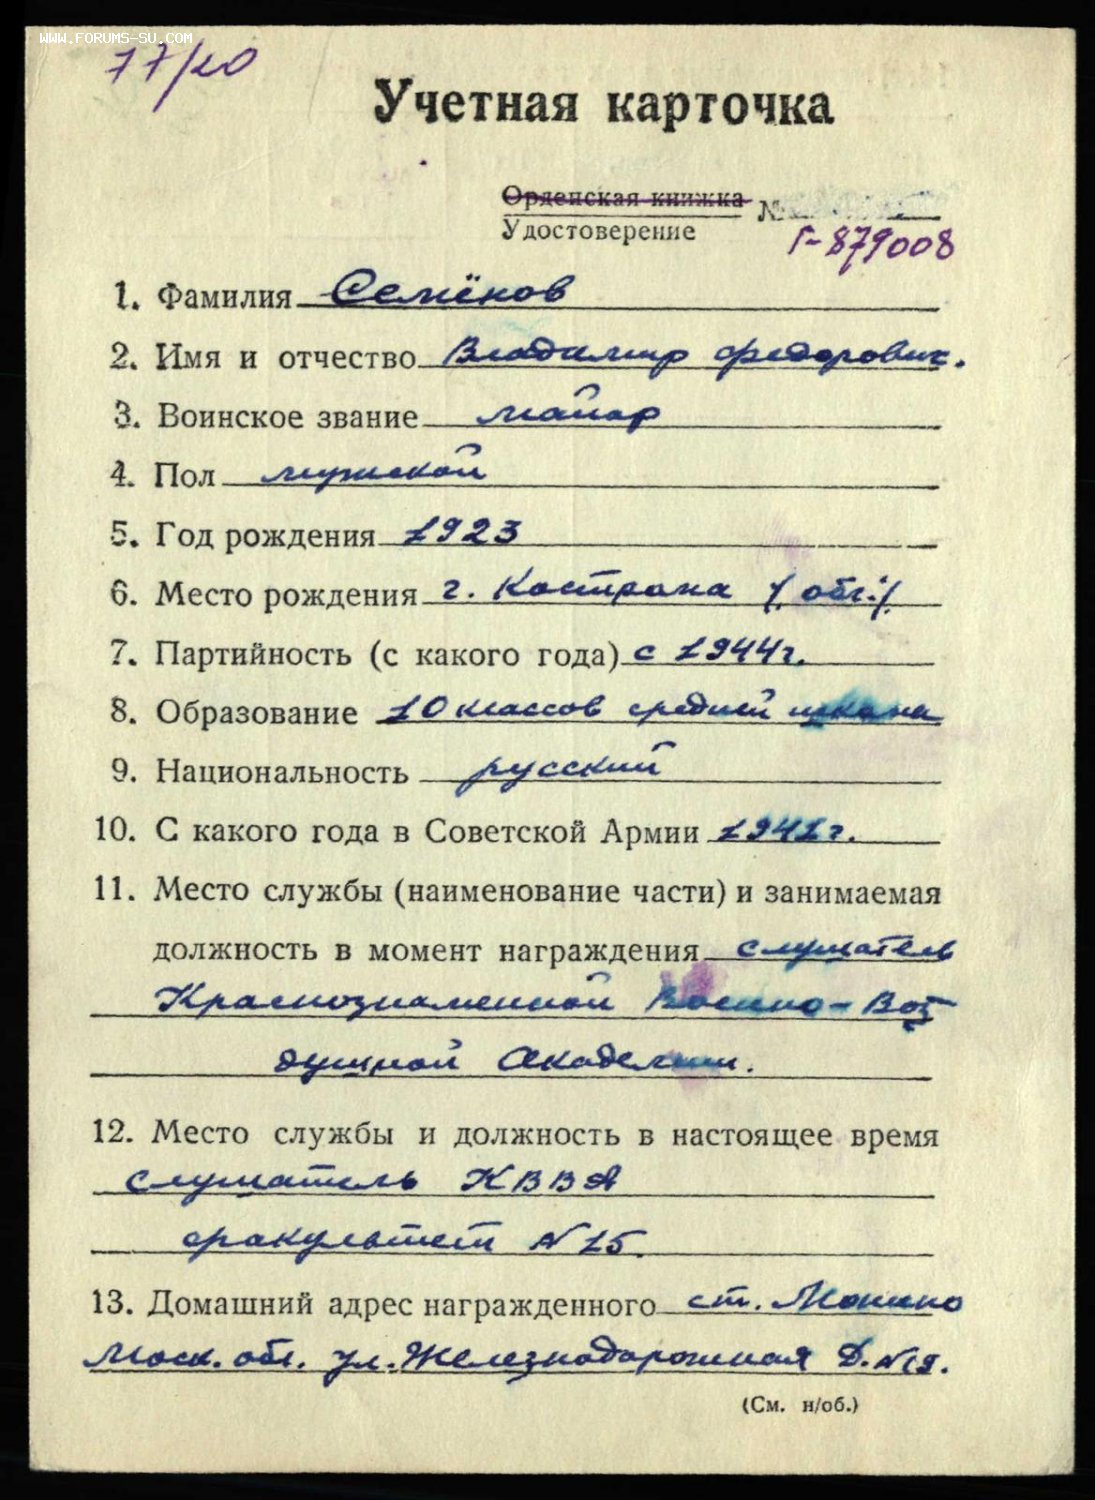 WWW.FORUMS-SU.COM
77/20
Учетная карточка
Орденская книжка №
Удостоверение
Г-879008
1. Фамилия Семёнов
2. Имя и отчество Владимир Федорович.
3. Воинское звание майор
4. Пол мужской
5. Год рождения 1923
6. Место рождения г. Кострома /обл./
7. Партийность (с какого года) с 1944г.
8. Образование 10 классов средней школы
9. Национальность русский
10. С какого года в Советской Армии 1941г.
11. Место службы (наименование части) и занимаемая
должность в момент награждения слушатель
Краснознаменной Военно-Воз
душной Академии.
12. Место службы и должность в настоящее время
слушатель КВВА
факультет №15.
13. Домашний адрес награжденного ст. Монино
Моск. обл. ул. Железнодорожная Д. №19.
(См. н/об.)